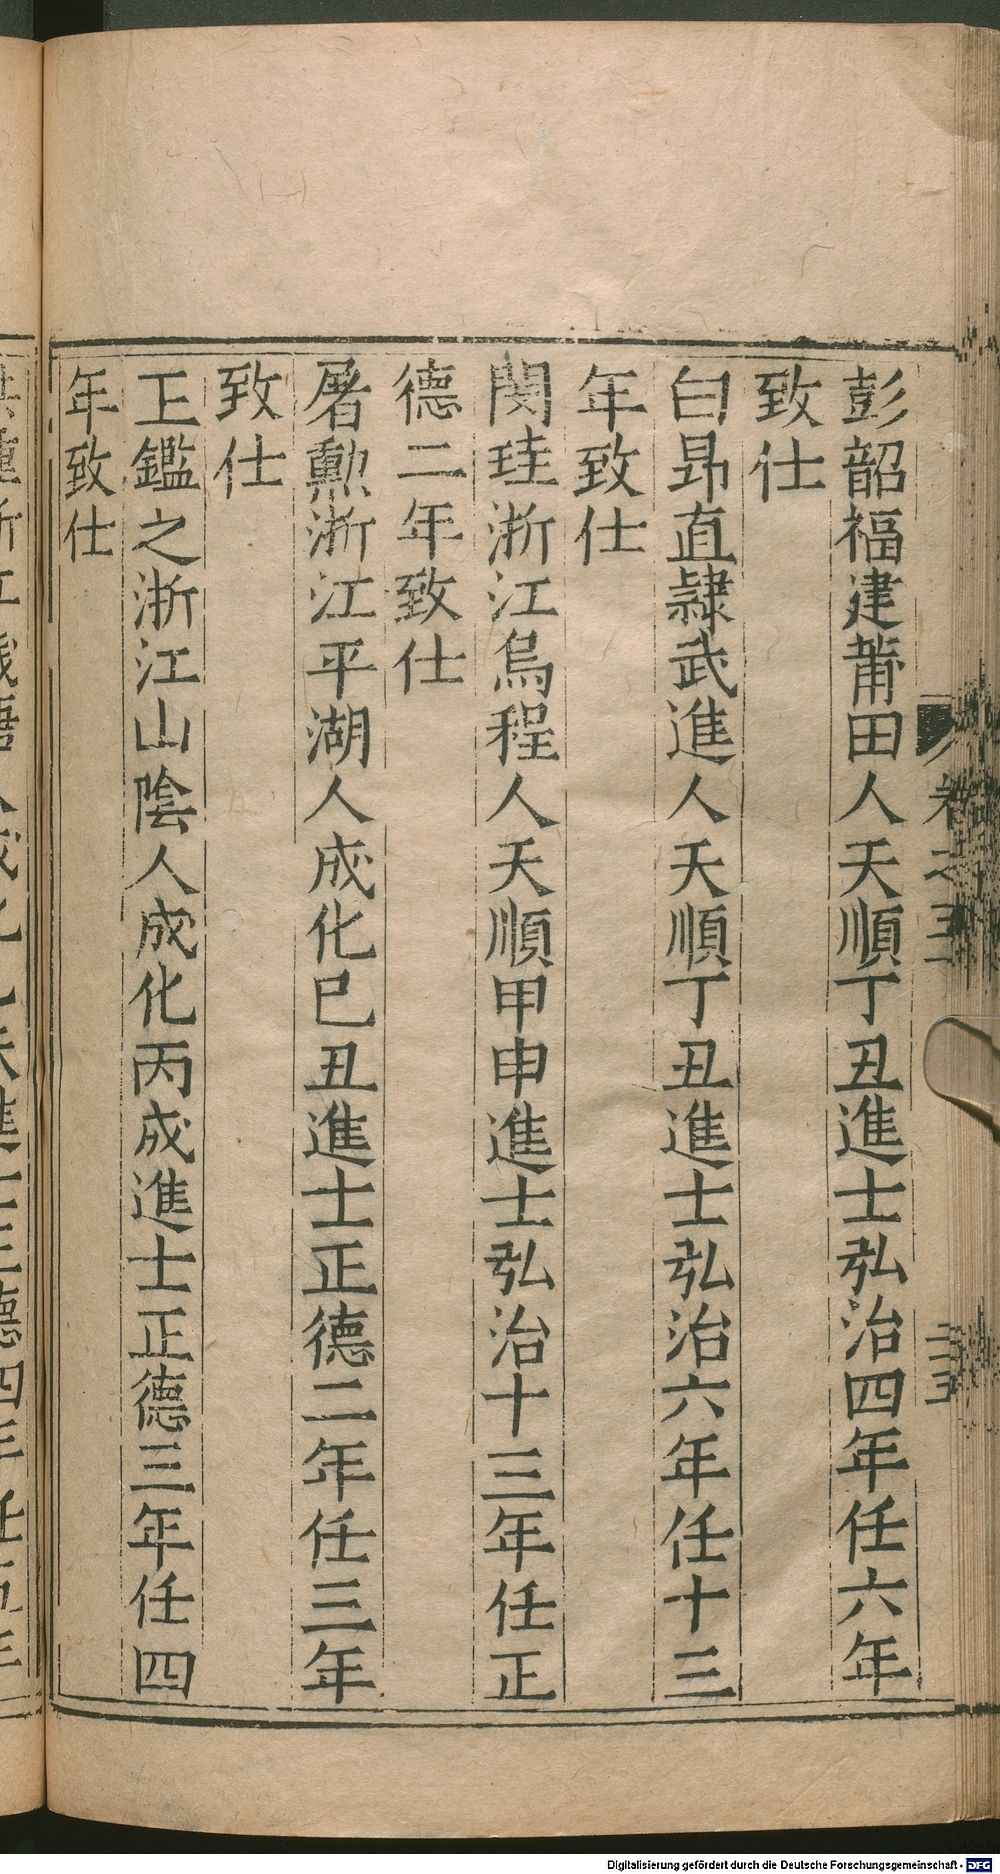 彭韶福建莆田人天順丁丑進士弘治四年任六年
致仕
白昂直隸武進人天順丁丑進士弘治六年任十三
年致仕
閔珪浙江烏程人天順甲申進士弘治十三年任正
德二年致仕
屠勳浙江平湖人成化巳丑進士正德二年任三年
致仕
王鑑之浙江山陰人成化丙戌進士正德三年任四
年致仕
卷之三
Digitalisierung gefördert durch die Deutsche Forschungsgemeinschaft - DFG